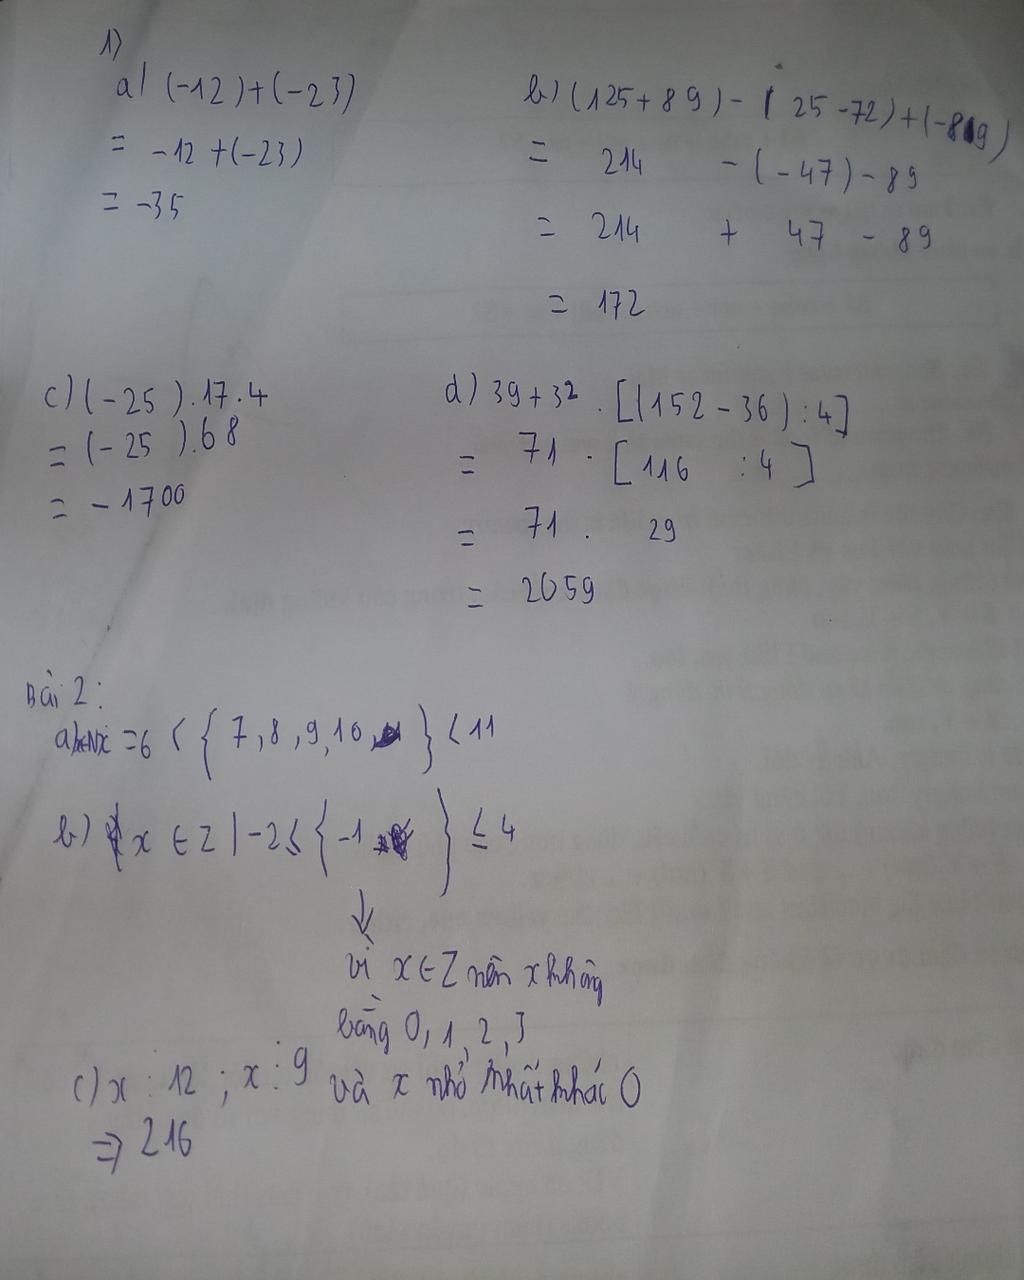 1)
a) (-12)+(-23)
= -12+(-23)
= -35
b) (125+89)-(25-72)+(-89)
= 214 -(-47)-89
= 214 + 47 - 89
= 172
c) (-25).17.4
= (-25).68
= -1700
d) 39+32.[(152-36):4]
= 71.[116 :4]
= 71. 29
= 2059
Bài 2:
a) =6<{7,8,9,10,}<11
b) x ∈ Z|-2≤{-1 }≤4
↓
vì x∈Z nên x không
bằng 0,1,2,3
c) x⋮12; x⋮9 và x nhỏ nhất khác 0
⇒ 216